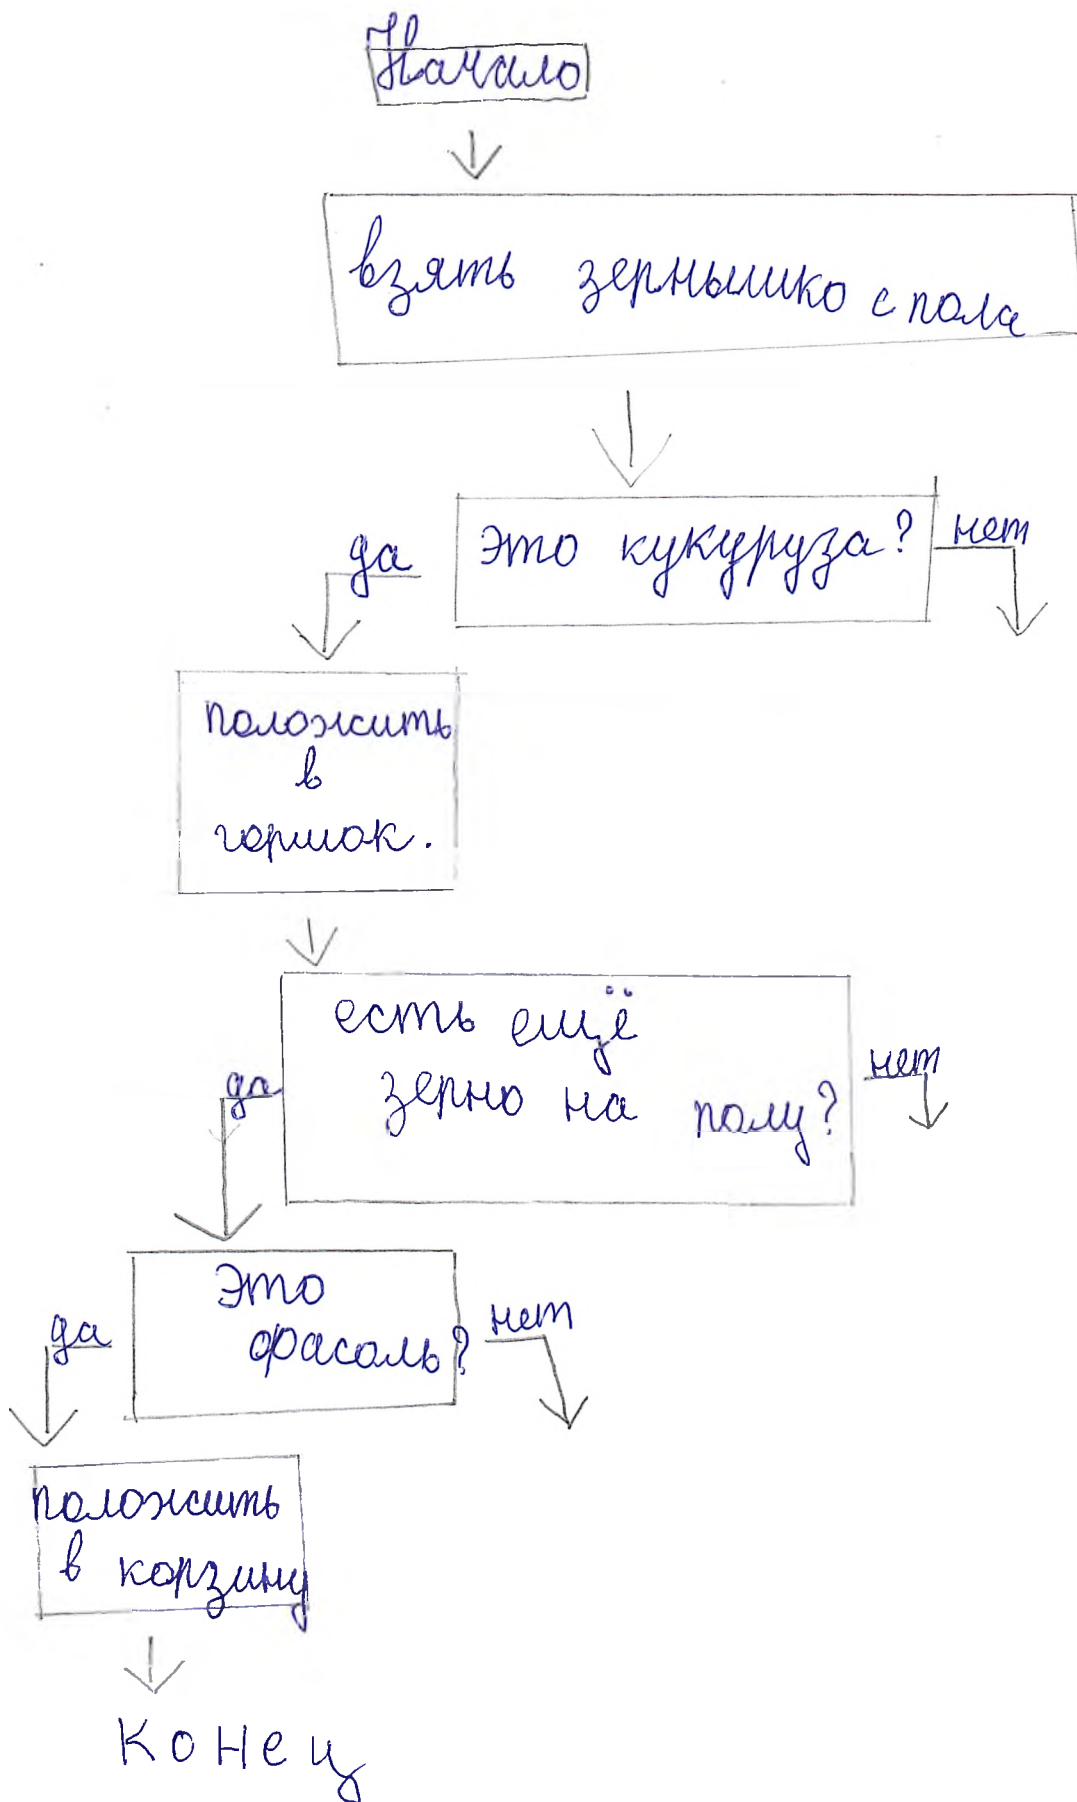 Начало
взять зернышко с пола
да
это кукуруза?
нет
положить
в
горшок.
есть ещё
зерно на полу?
да
нет
Это
фасоль?
да
нет
положить
в корзину
Конец